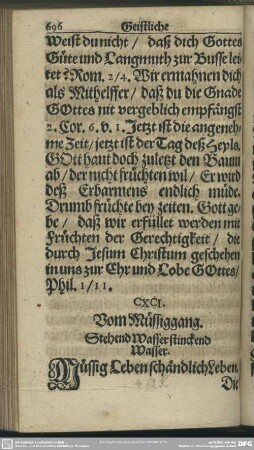 696 Geistliche
Weist du nicht / daß dich Gottes
Güte und Langmuth zur Busse lei-
tet? Rom. 2/4. Wir ermahnen dich
als Mithelffer / daß du die Gnade
GOttes nit vergeblich empfängst
2. Cor. 6. v. 1. Jetzt ist die angeneh-
me Zeit / jetzt ist der Tag deß Heyls.
GOtt haut doch zuletzt den Baum
ab / der nicht früchten wil / Er wird
deß Erbarmens endlich müde.
Drumb früchte bey zeiten. Gott ge-
be / daß wir erfüllet werden mit
Früchten der Gerechtigkeit / die
durch Jesum Christum geschehen
in uns zur Ehr und Lobe GOttes /
Phil. 1/11.
CXCI.
Vom Müssiggang.
Stehend Wasser stinckend
Wasser.
Müssig Leben schändlich Leben.
Die